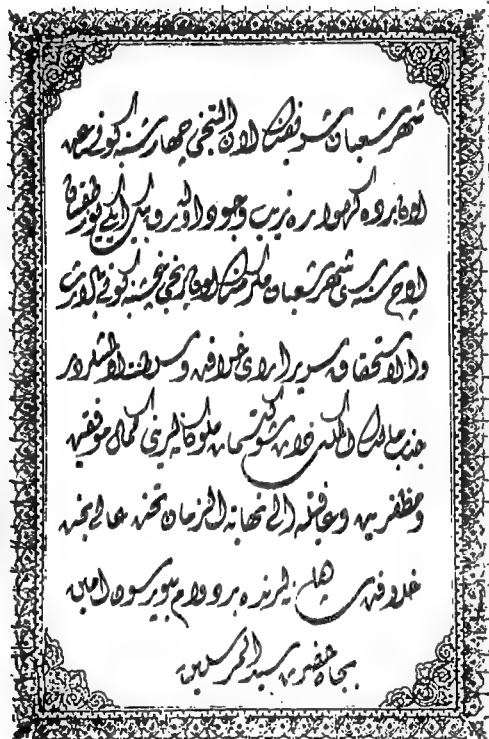 شهر شعبان شريفنك اون التنجى چهارشنبه كونى
اون برده كهواره زيب وجود اولوب و بيك ايكيوز طقسان
اوچ سنه سى شهر شعبان مكرمنك اون برنجى پنجشنبه كونى بالارث
والاستحقاق سرير اراى خلافت و سلطنت اولمشلردر
جناب مالك الملك ذات شوكتسمات ملوكانه لرينى كمال موفقيت
و مظفريت و عافيتله الى نهاية الزمان تخت عالى بخت
خلافت پناهيلرنده بردوام بيورسون امين
بجاه حضرت سيد المرسلين